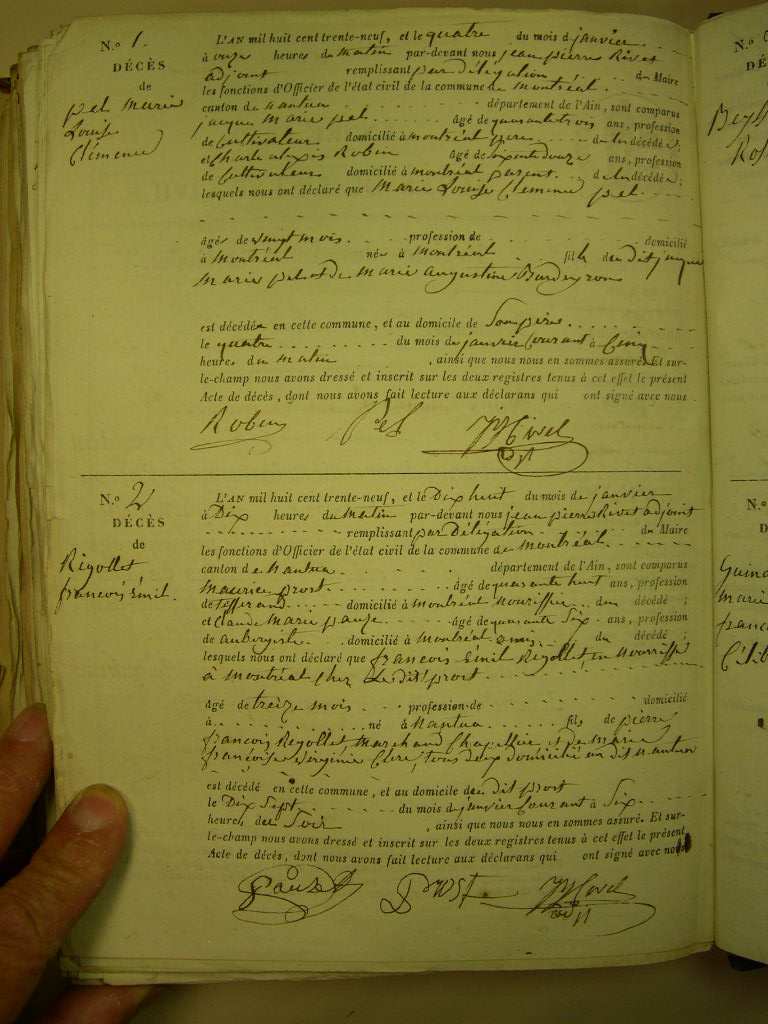 N.o 1.
DÉCÈS
de
pel marie
Louise
Clémence
L'AN mil huit cent trente-neuf, et le quatre du mois de janvier
à onze heures du Matin par-devant nous jean pierre Rivet
adjoint remplissant par délégation du Maire
les fonctions d'Officier de l'état civil de la commune de Montréal
canton de Nantua département de l'Ain, sont comparus
jacque Marie pel âgé de quarante trois ans, profession
de Cultivateur domicilié à montréal père de la décédée;
et Charle alexis Robin âgé de ans, profession
de Cultivateur domicilié à montréal parent de la décédée;
lesquels nous ont déclaré que Marie Louise Clémence pel
âgée de vingt mois profession de domicilié
à Montréal née à Montréal fille de dit jacque
Marie pel et de Marie augustine
est décédée en cette commune, et au domicile de Son père
le quatre du mois de janvier Courant à Cinq
heures du Matin, ainsi que nous nous en sommes assuré. Et sur-
le-champ nous avons dressé et inscrit sur les deux registres tenus à cet effet le présent
Acte de décès, dont nous avons fait lecture aux déclarans qui ont signé avec nous.
Robin Pel
N.o 2
DÉCÈS
de
Rigollet
francois Émil.
L'AN mil huit cent trente-neuf, et le Dix huit du mois de janvier
à Dix heures du Matin par-devant nous jean pierre Rivet adjoint
remplissant par Délégation du Maire
les fonctions d'Officier de l'état civil de la commune de Montréal
canton de Nantua département de l'Ain, sont comparus
Maurice prost âgé de quarante huit ans, profession
de Tisserand domicilié à Montréal Nourissier du décédé;
et Claude Marie âgé de quarante Six ans, profession
de aubergiste domicilié à Montréal amis du décédé;
lesquels nous ont déclaré que francois Émil Rigollet, en Nourrisse
à Montréal Chez Le dit prost
âgé de treize mois profession de domicilié
à né à Nantua fils de pierre
francois Rigollet, Marchand Chapellier et de Marie
francoise Virginie Clerc, tous deux domicilié au dit Nantua
est décédé en cette commune, et au domicile du dit prost
le Dix Sept du mois de janvier Courant à Six
heures du Soir, ainsi que nous nous en sommes assuré. Et sur-
le-champ nous avons dressé et inscrit sur les deux registres tenus à cet effet le présent
Acte de décès, dont nous avons fait lecture aux déclarans qui ont signé avec nous
Prost